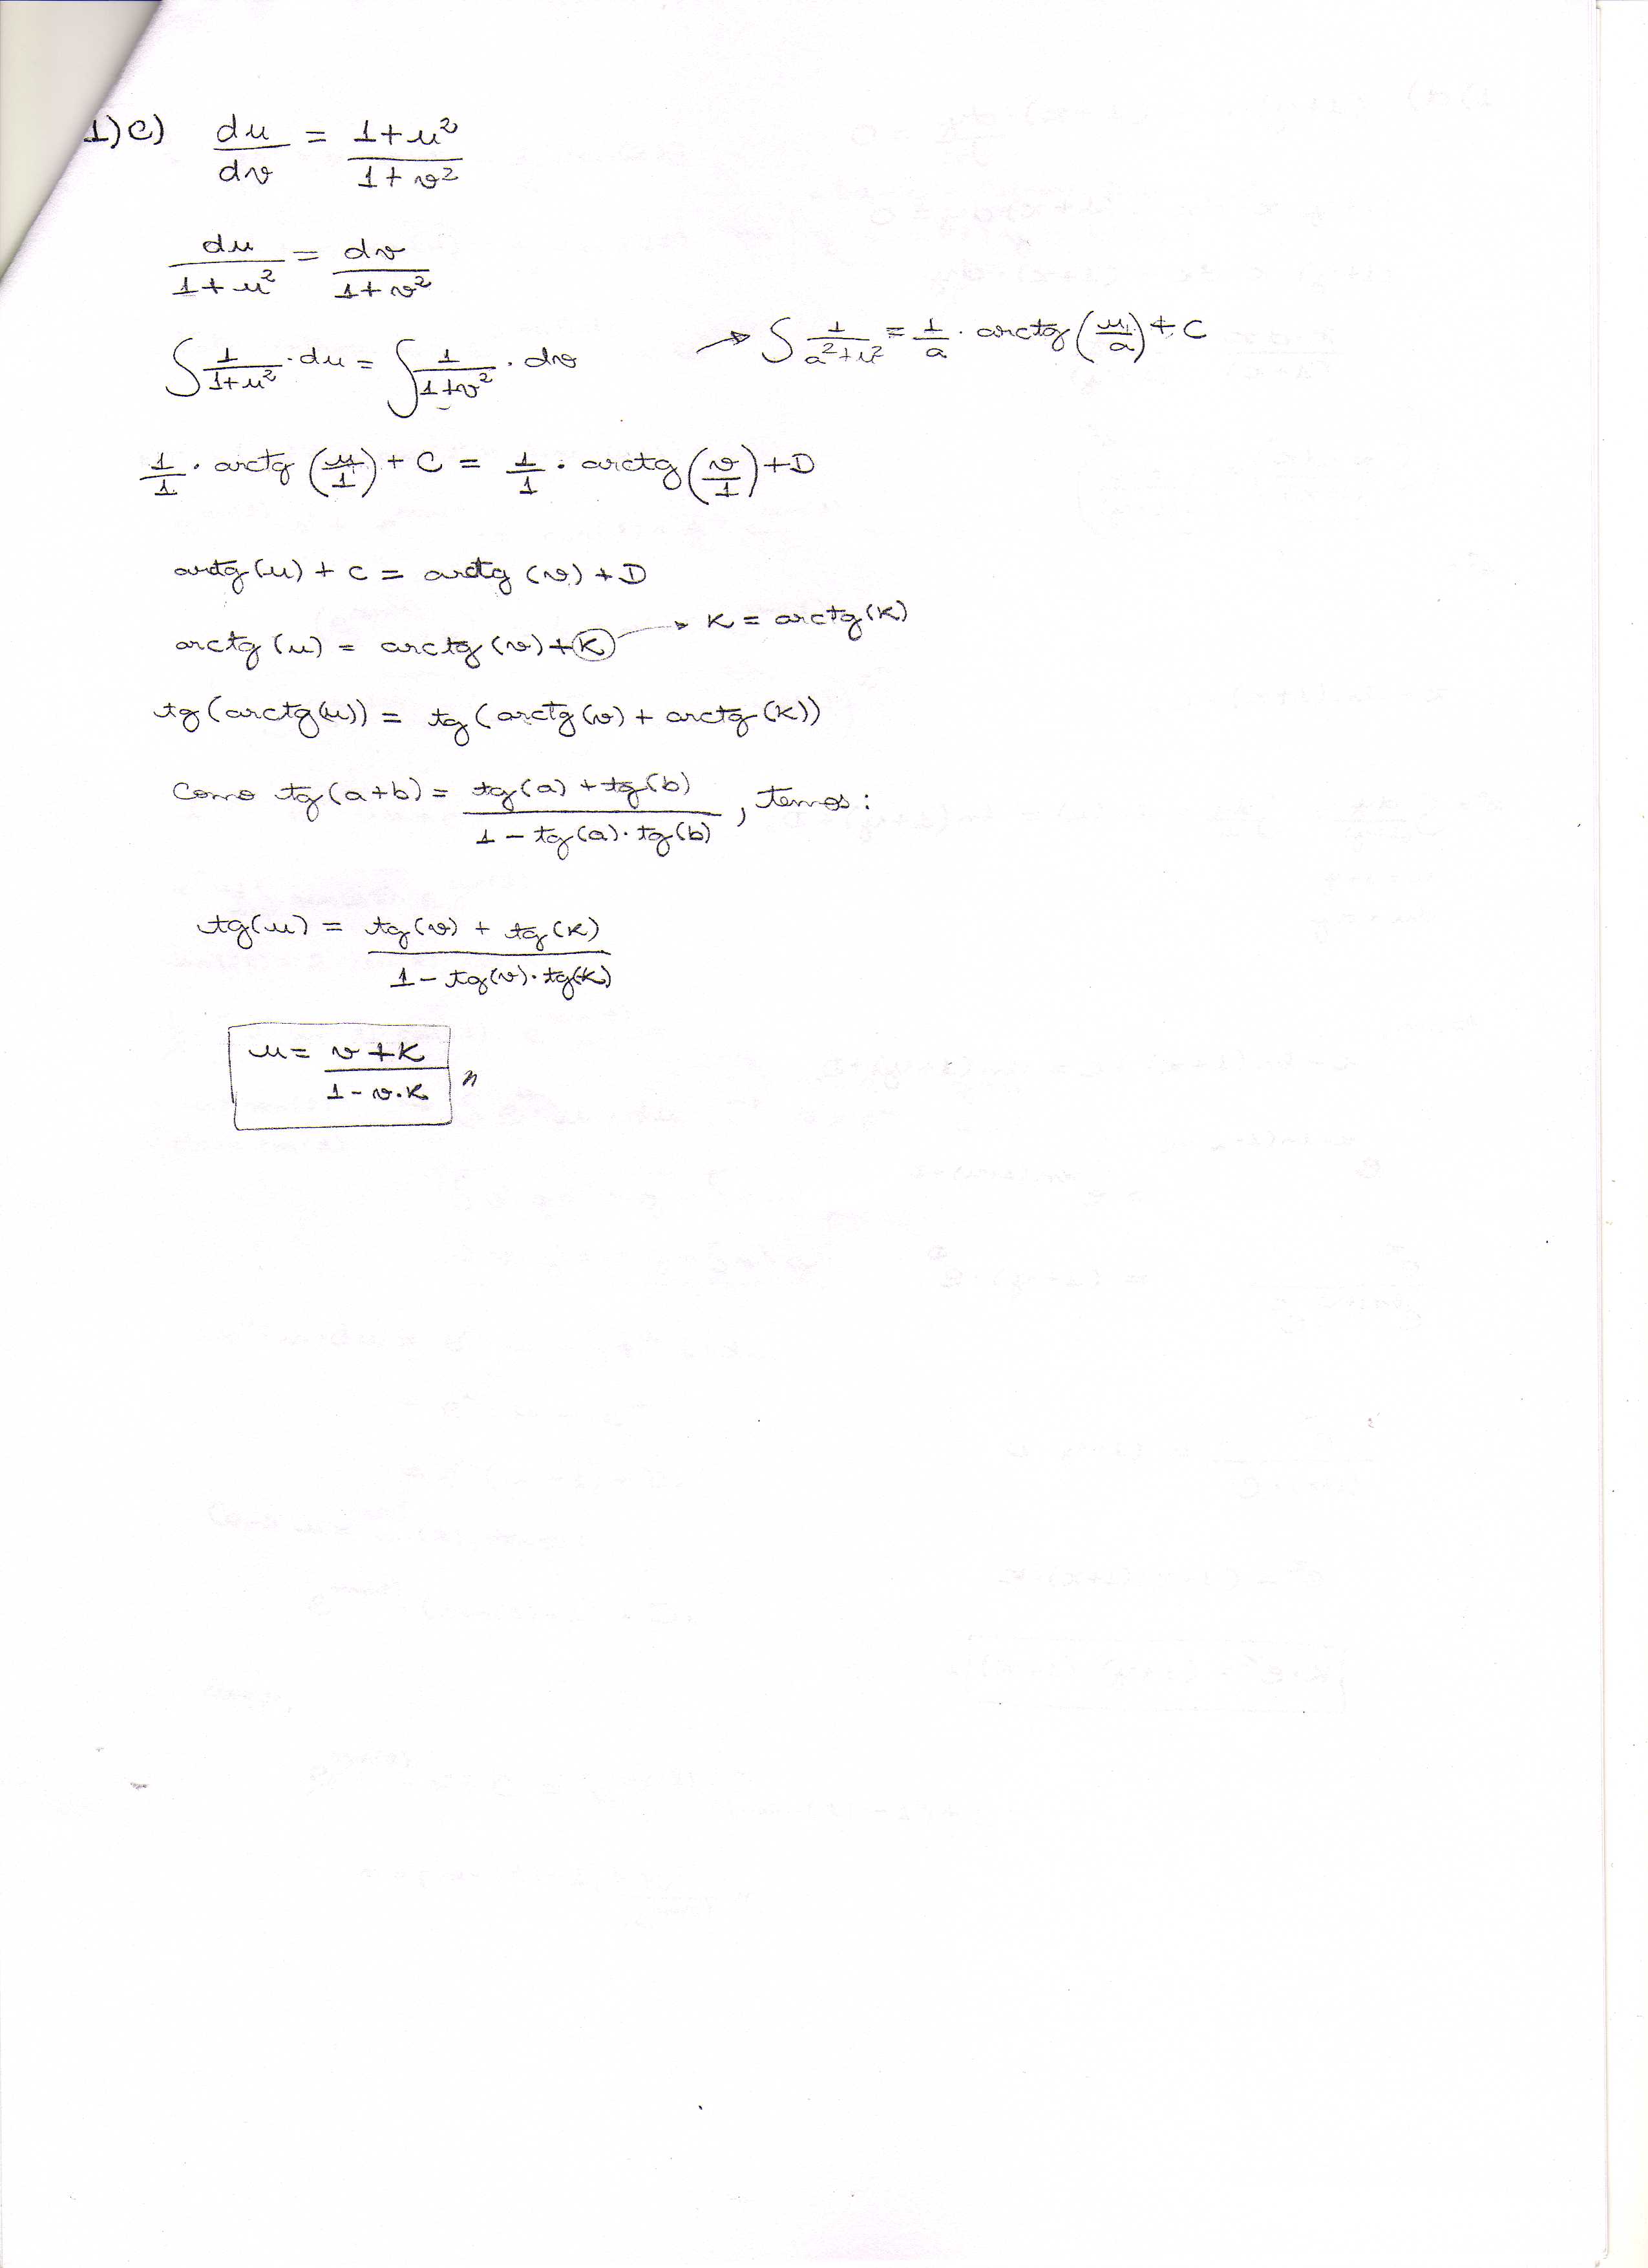 1)c) du/dv = (1+u²)/(1+v²)
du/(1+u²) = dv/(1+v²)
∫ 1/(1+u²) · du = ∫ 1/(1+v²) · dv → ∫ 1/(a²+u²) = 1/a · arctg(u/a) + C
1/1 · arctg(u/1) + C = 1/1 · arctg(v/1) + D
arctg(u) + C = arctg(v) + D
arctg(u) = arctg(v) + K → K = arctg(K)
tg(arctg(u)) = tg(arctg(v) + arctg(K))
Como tg(a+b) = (tg(a) + tg(b))/(1 - tg(a)·tg(b)), temos:
tg(u) = (tg(v) + tg(K))/(1 - tg(v)·tg(K))
u = (v+K)/(1-v.K)